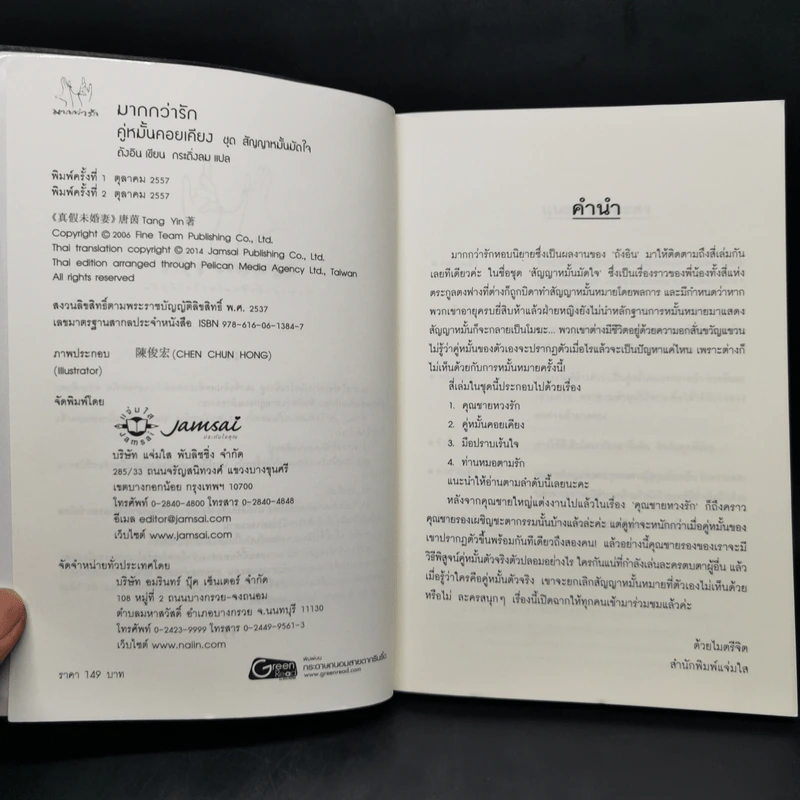 มากกว่ารัก
มากกว่ารัก
คู่หมั้นคอยเคียง ชุด สัญญาหมั้นมัดใจ
ถังอิน เขียน กระดิ่งลม แปล
พิมพ์ครั้งที่ 1 ตุลาคม 2557
พิมพ์ครั้งที่ 2 ตุลาคม 2557
《真假未婚妻》唐茵 Tang Yin 著
Copyright © 2006 Fine Team Publishing Co., Ltd.
Thai translation copyright © 2014 Jamsai Publishing Co., Ltd.
Thai edition arranged through Pelican Media Agency Ltd., Taiwan
All rights reserved
สงวนลิขสิทธิ์ตามพระราชบัญญัติลิขสิทธิ์ พ.ศ. 2537
เลขมาตรฐานสากลประจำหนังสือ ISBN 978-616-06-1384-7
ภาพประกอบ 陳俊宏 (CHEN CHUN HONG)
(Illustrator)
จัดพิมพ์โดย
แจ่มใส
JAMSAI
Jamsai
บริษัท แจ่มใส พับลิชชิ่ง จำกัด
285/33 ถนนจรัญสนิทวงศ์ แขวงบางขุนศรี
เขตบางกอกน้อย กรุงเทพฯ 10700
โทรศัพท์ 0-2840-4800 โทรสาร 0-2840-4848
อีเมล editor@jamsai.com
เว็บไซต์ www.jamsai.com
จัดจำหน่ายทั่วประเทศโดย
บริษัท อมรินทร์ บุ๊ค เซ็นเตอร์ จำกัด
108 หมู่ที่ 2 ถนนบางกรวย-จงถนอม
ตำบลมหาสวัสดิ์ อำเภอบางกรวย จ.นนทบุรี 11130
โทรศัพท์ 0-2423-9999 โทรสาร 0-2449-9561-3
เว็บไซต์ www.naiin.com
ราคา 149 บาท
Green Read
พิมพ์บน
กระดาษถนอมสายตากรีนรี้ด
www.greenread.com
คำนำ
มากกว่ารักหอบนิยายซึ่งเป็นผลงานของ 'ถังอิน' มาให้ติดตามถึงสี่เล่มกัน
เลยทีเดียวค่ะ ในชื่อชุด 'สัญญาหมั้นมัดใจ' ซึ่งเป็นเรื่องราวของพี่น้องทั้งสี่แห่ง
ตระกูลตงฟางที่ต่างก็ถูกบิดาทำสัญญาหมั้นหมายโดยพลการ และมีกำหนดว่าหาก
พวกเขาอายุครบยี่สิบห้าแล้วฝ่ายหญิงยังไม่นำหลักฐานการหมั้นหมายมาแสดง
สัญญาหมั้นก็จะกลายเป็นโมฆะ... พวกเขาต่างมีชีวิตอยู่ด้วยความอกสั่นขวัญแขวน
ไม่รู้ว่าคู่หมั้นของตัวเองจะปรากฏตัวเมื่อไรแล้วจะเป็นปัญหาแค่ไหน เพราะต่างก็
ไม่เห็นด้วยกับการหมั้นหมายครั้งนี้!
สี่เล่มในชุดนี้ประกอบไปด้วยเรื่อง
1. คุณชายหวงรัก
2. คู่หมั้นคอยเคียง
3. มือปราบเร้นใจ
4. ท่านหมอตามรัก
แนะนำให้อ่านตามลำดับนี้เลยนะคะ
หลังจากคุณชายใหญ่แต่งงานไปแล้วในเรื่อง 'คุณชายหวงรัก' ก็ถึงคราว
คุณชายรองเผชิญชะตากรรมนั้นบ้างแล้วล่ะค่ะ แต่ดูท่าจะหนักกว่าเมื่อคู่หมั้นของ
เขาปรากฏตัวขึ้นพร้อมกันทีเดียวถึงสองคน! แล้วอย่างนี้คุณชายรองของเราจะมี
วิธีพิสูจน์คู่หมั้นตัวจริงตัวปลอมอย่างไร ใครกันแน่ที่กำลังเล่นละครตบตาผู้อื่น แล้ว
เมื่อรู้ว่าใครคือคู่หมั้นตัวจริง เขาจะยกเลิกสัญญาหมั้นหมายที่ตัวเองไม่เห็นด้วย
หรือไม่ ละครสนุกๆ เรื่องนี้เปิดฉากให้ทุกคนเข้ามาร่วมชมแล้วค่ะ
ด้วยไมตรีจิต
สำนักพิมพ์แจ่มใส